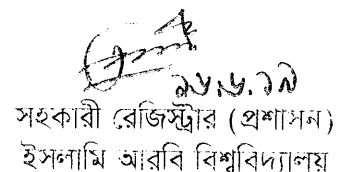 ১৮.৬.১৯
সহকারী রেজিস্ট্রার (প্রশাসন)
ইসলামি আরবি বিশ্ববিদ্যালয়